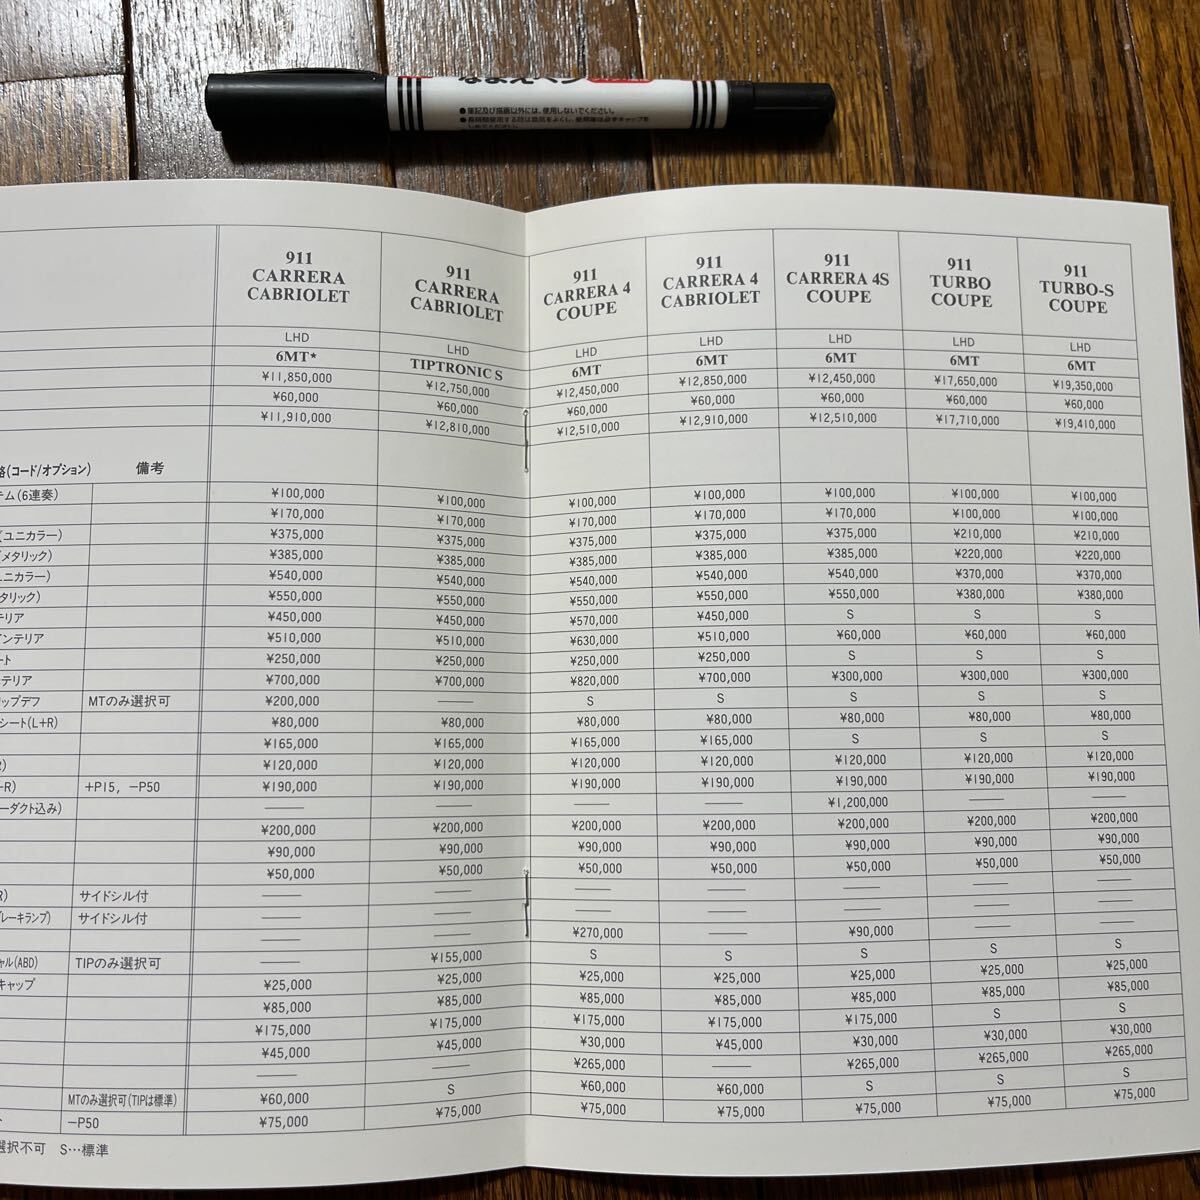 なまえペン
●筆記及び描画以外には、使用しないでください。
911 CARRERA CABRIOLET 911 CARRERA CABRIOLET 911 CARRERA 4 COUPE 911 CARRERA 4 CABRIOLET 911 CARRERA 4S COUPE 911 TURBO COUPE 911 TURBO-S COUPE
LHD LHD LHD LHD LHD LHD LHD
6MT* TIPTRONIC S 6MT 6MT 6MT 6MT 6MT
¥11,850,000 ¥12,750,000 ¥12,450,000 ¥12,850,000 ¥12,450,000 ¥17,650,000 ¥19,350,000
¥60,000 ¥60,000 ¥60,000 ¥60,000 ¥60,000 ¥60,000 ¥60,000
¥11,910,000 ¥12,810,000 ¥12,510,000 ¥12,910,000 ¥12,510,000 ¥17,710,000 ¥19,410,000
格(コード/オプション) 備考
テム(6連奏) ¥100,000 ¥100,000 ¥100,000 ¥100,000 ¥100,000 ¥100,000 ¥100,000
¥170,000 ¥170,000 ¥170,000 ¥170,000 ¥170,000 ¥100,000 ¥100,000
(ユニカラー) ¥375,000 ¥375,000 ¥375,000 ¥375,000 ¥375,000 ¥210,000 ¥210,000
メタリック) ¥385,000 ¥385,000 ¥385,000 ¥385,000 ¥385,000 ¥220,000 ¥220,000
ユニカラー) ¥540,000 ¥540,000 ¥540,000 ¥540,000 ¥540,000 ¥370,000 ¥370,000
タリック) ¥550,000 ¥550,000 ¥550,000 ¥550,000 ¥550,000 ¥380,000 ¥380,000
テリア ¥450,000 ¥450,000 ¥570,000 ¥450,000 S S S
インテリア ¥510,000 ¥510,000 ¥630,000 ¥510,000 ¥60,000 ¥60,000 ¥60,000
ート ¥250,000 ¥250,000 ¥250,000 ¥250,000 S S S
テリア ¥700,000 ¥700,000 ¥820,000 ¥700,000 ¥300,000 ¥300,000 ¥300,000
ップデフ MTのみ選択可 ¥200,000 — S S S S S
シート(L+R) ¥80,000 ¥80,000 ¥80,000 ¥80,000 ¥80,000 ¥80,000 ¥80,000
¥165,000 ¥165,000 ¥165,000 ¥165,000 S S S
R) ¥120,000 ¥120,000 ¥120,000 ¥120,000 ¥120,000 ¥120,000 ¥120,000
-R) +P15, -P50 ¥190,000 ¥190,000 ¥190,000 ¥190,000 ¥190,000 ¥190,000 ¥190,000
ーダクト込み) — — — — ¥1,200,000 — —
¥200,000 ¥200,000 ¥200,000 ¥200,000 ¥200,000 ¥200,000 ¥200,000
¥90,000 ¥90,000 ¥90,000 ¥90,000 ¥90,000 ¥90,000 ¥90,000
¥50,000 ¥50,000 ¥50,000 ¥50,000 ¥50,000 ¥50,000 ¥50,000
R) サイドシル付 — — — — — — —
ブレーキランプ) サイドシル付 — — — — — — —
— — ¥270,000 — ¥90,000 — —
ャル(ABD) TIPのみ選択可 — ¥155,000 S S S S S
キャップ ¥25,000 ¥25,000 ¥25,000 ¥25,000 ¥25,000 ¥25,000 ¥25,000
¥85,000 ¥85,000 ¥85,000 ¥85,000 ¥85,000 ¥85,000 ¥85,000
¥175,000 ¥175,000 ¥175,000 ¥175,000 ¥175,000 S S
¥45,000 ¥45,000 ¥30,000 ¥45,000 ¥30,000 ¥30,000 ¥30,000
— — ¥265,000 — ¥265,000 ¥265,000 ¥265,000
MTのみ選択可(TIPは標準) ¥60,000 S ¥60,000 ¥60,000 S S S
-P50 ¥75,000 ¥75,000 ¥75,000 ¥75,000 ¥75,000 ¥75,000 ¥75,000
選択不可 S…標準